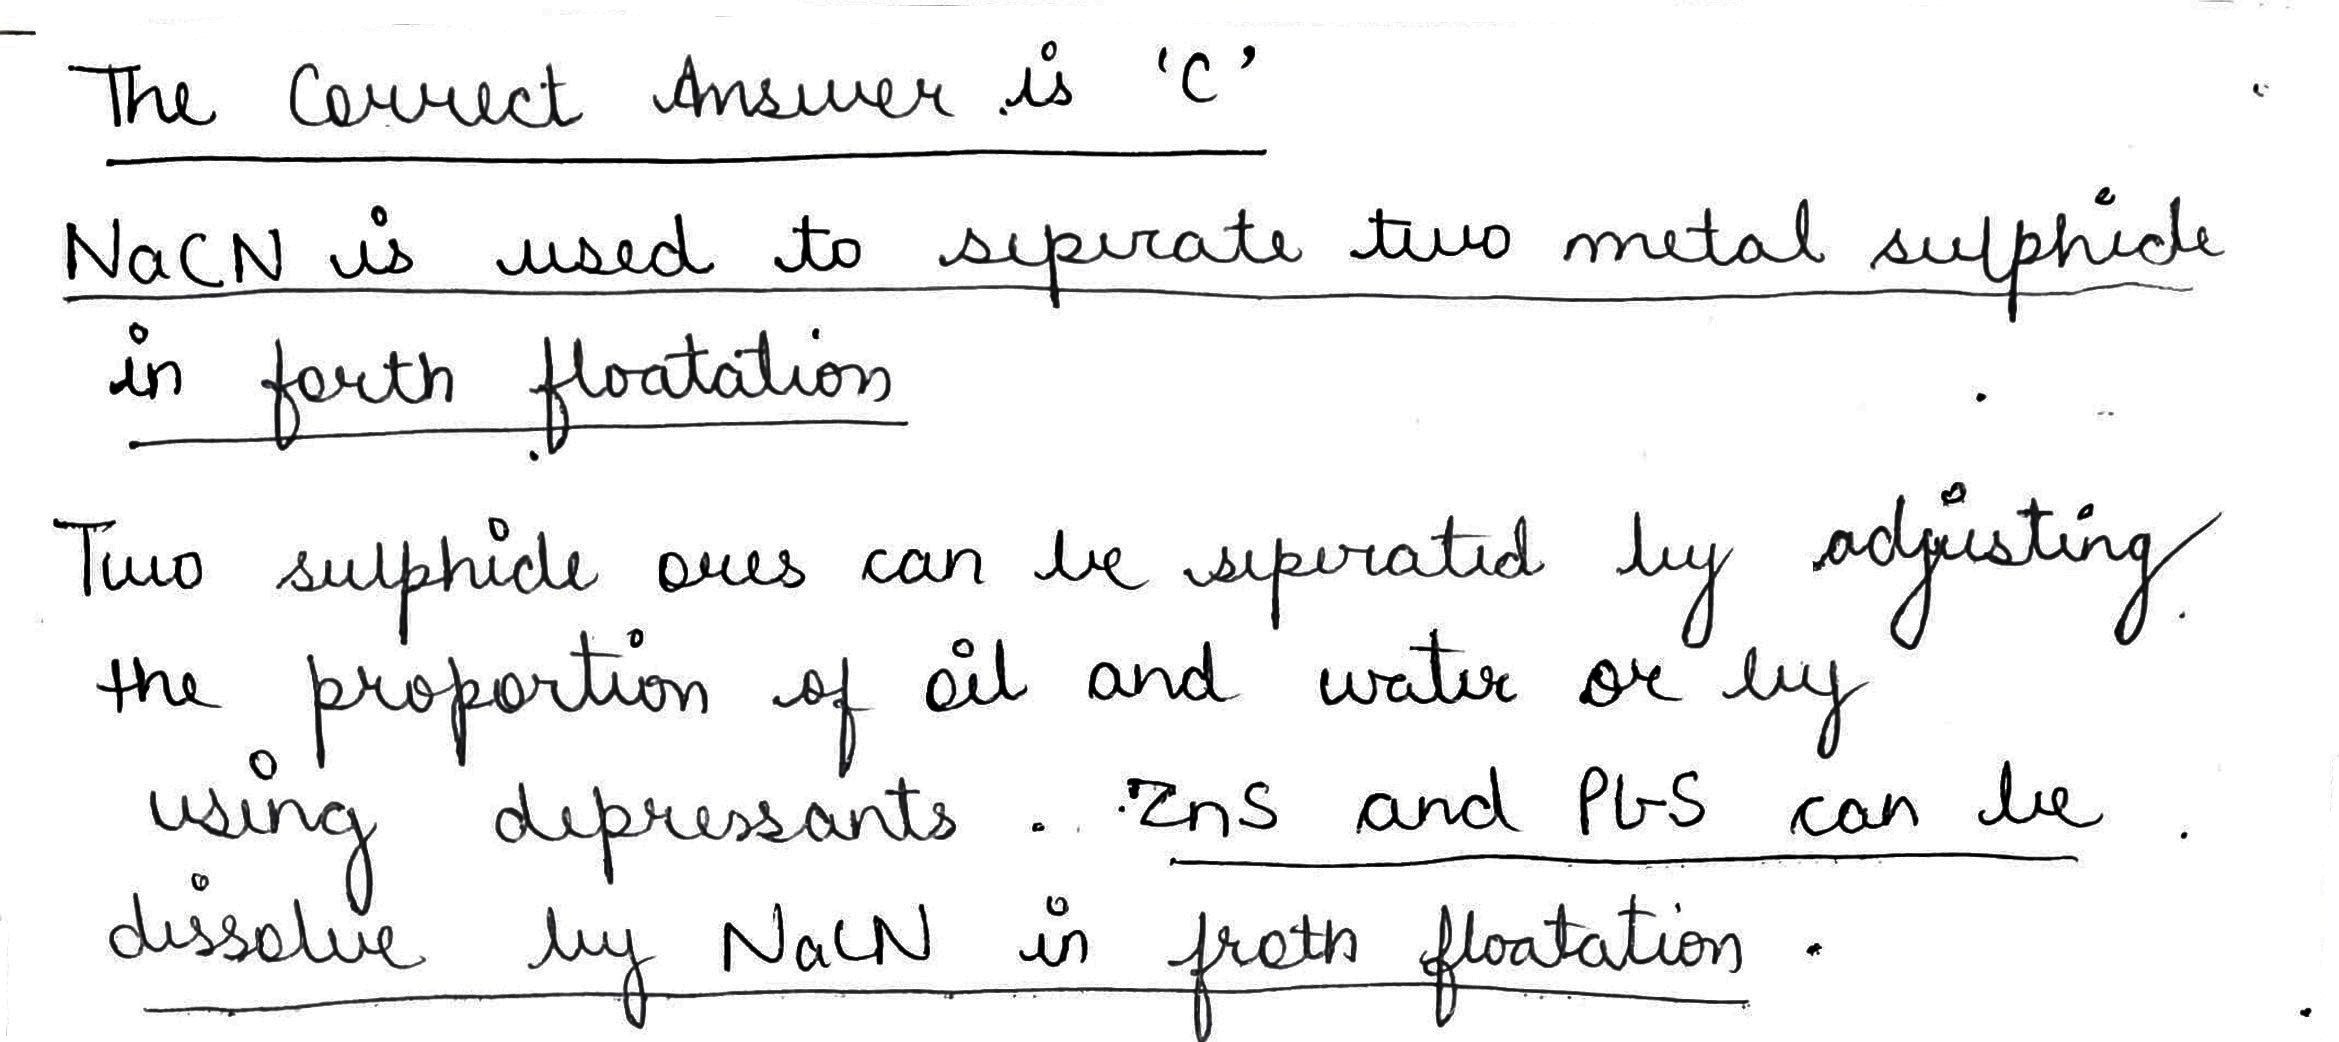 The Correct Answer is 'C'
NaCN is used to seperate two metal sulphide
in forth floatation
Two sulphide ores can be seperated by adjusting
the proportion of oil and water or by
using depressants. ZnS and PbS can be
dissolve by NaCN in froth floatation.